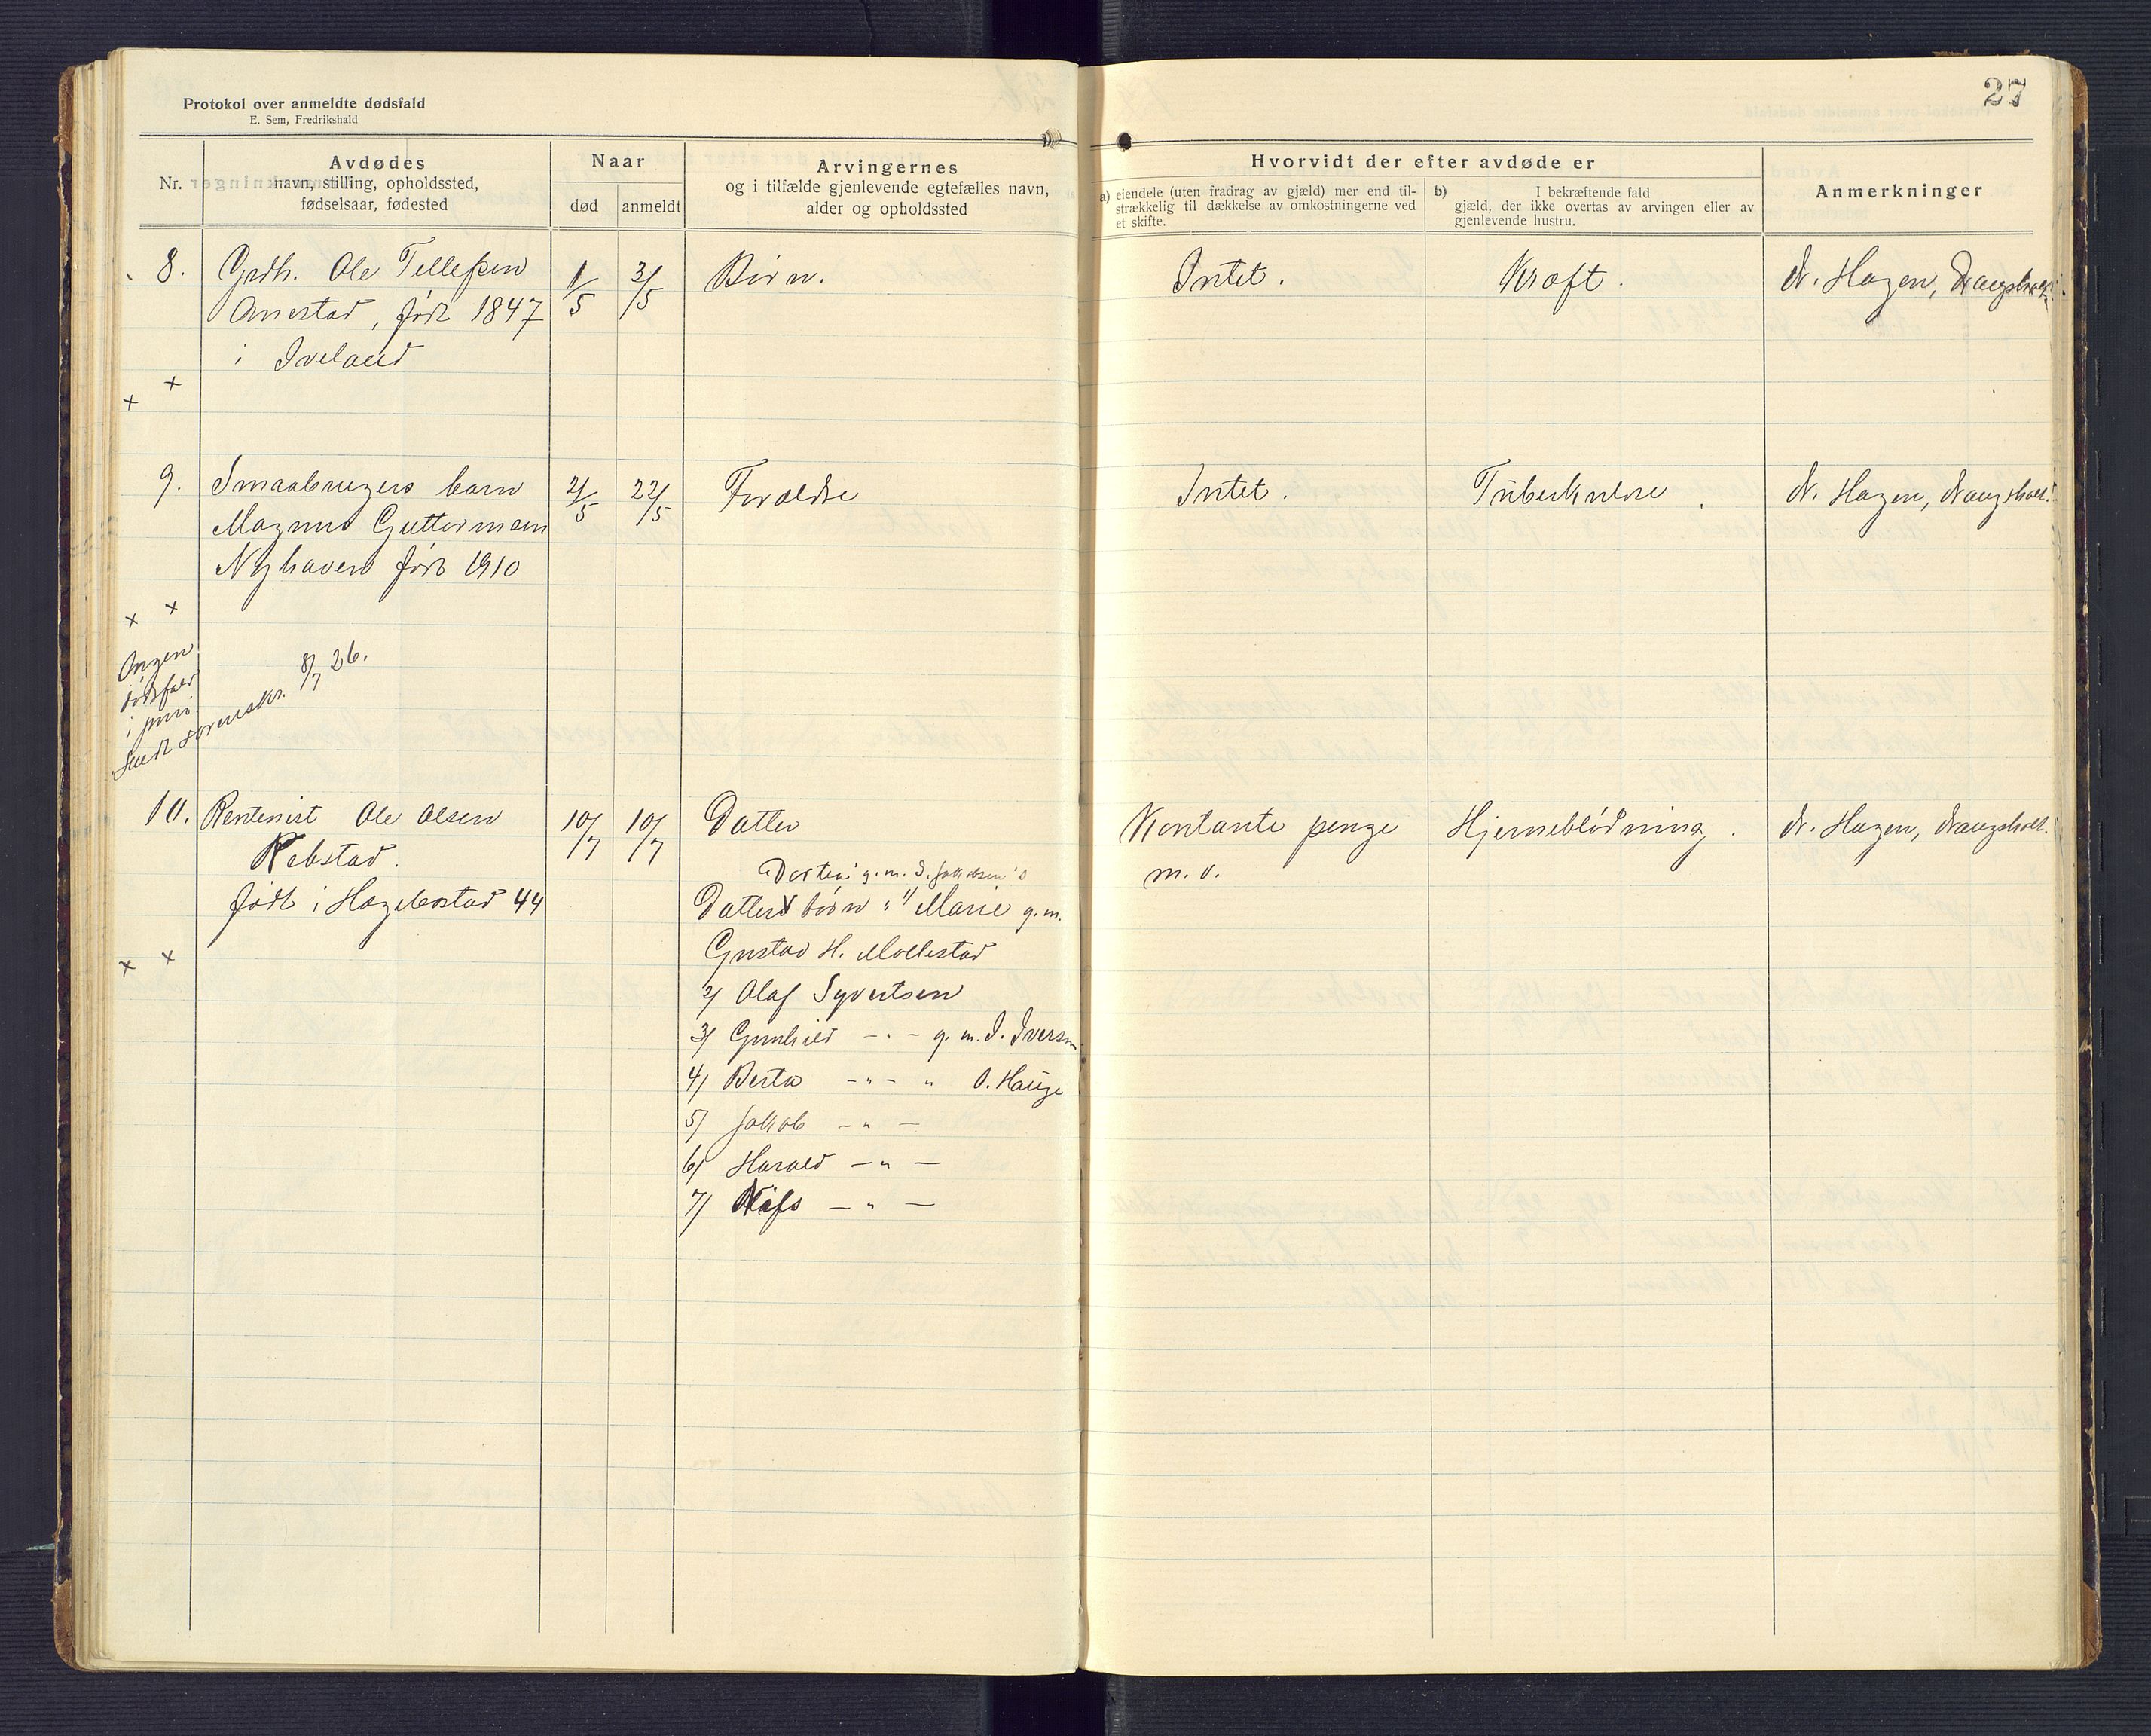 27
Protokol over anmeldte dødsfald
E. Sem, Fredrikshald
Nr.
Avdødes
navn, stilling, opholdssted,
fødselsaar, fødested
Naar
død
anmeldt
Arvingernes
og i tilfælde gjenlevende egtefælles navn,
alder og opholdssted
Hvorvidt der efter avdøde er
a) eiendele (uten fradrag av gjæld) mer end til-
strækkelig til dækkelse av omkostningerne ved
et skifte.
b) I bekræftende fald
gjæld, der ikke overtas av arvingen eller av
gjenlevende hustru.
Anmerkninger
8. Grdb. Ole Tellefsen 1/5 3/5 Børn. Intet. Kræft. Dr. Hagen, Drangsholt.
Ånestad, født 1847
i Iveland
+ +
9. Smaabrugers barn 2/5 22/5 Forældre Intet. Tuberkulose. Dr. Hagen, Drangsholt.
Magnus Guttormsen
Nyhaven født 1910
+ +
Ingen
dødsfald
i juni
Sendt sorenskr. 8/7 26.
10. Rentenist Ole Olsen 10/7 10/7 Datter Kontante penge Hjerneblødning. Dr. Hagen, Drangsholt.
Rebstad. m. v.
"Dorthea" g. m. S. Jakobsen's
født i Hægebostad 44 Datters børn: 1/ Marie g. m.
+ + Gustav H. Mollestad
2/ Olaf Syvertsen
3/ Gunhild - " - g. m. I. Iversen
4/ Berta - " - " O. Hauge
5/ Jakob - " -
6/ Harald - " -
7/ - " -